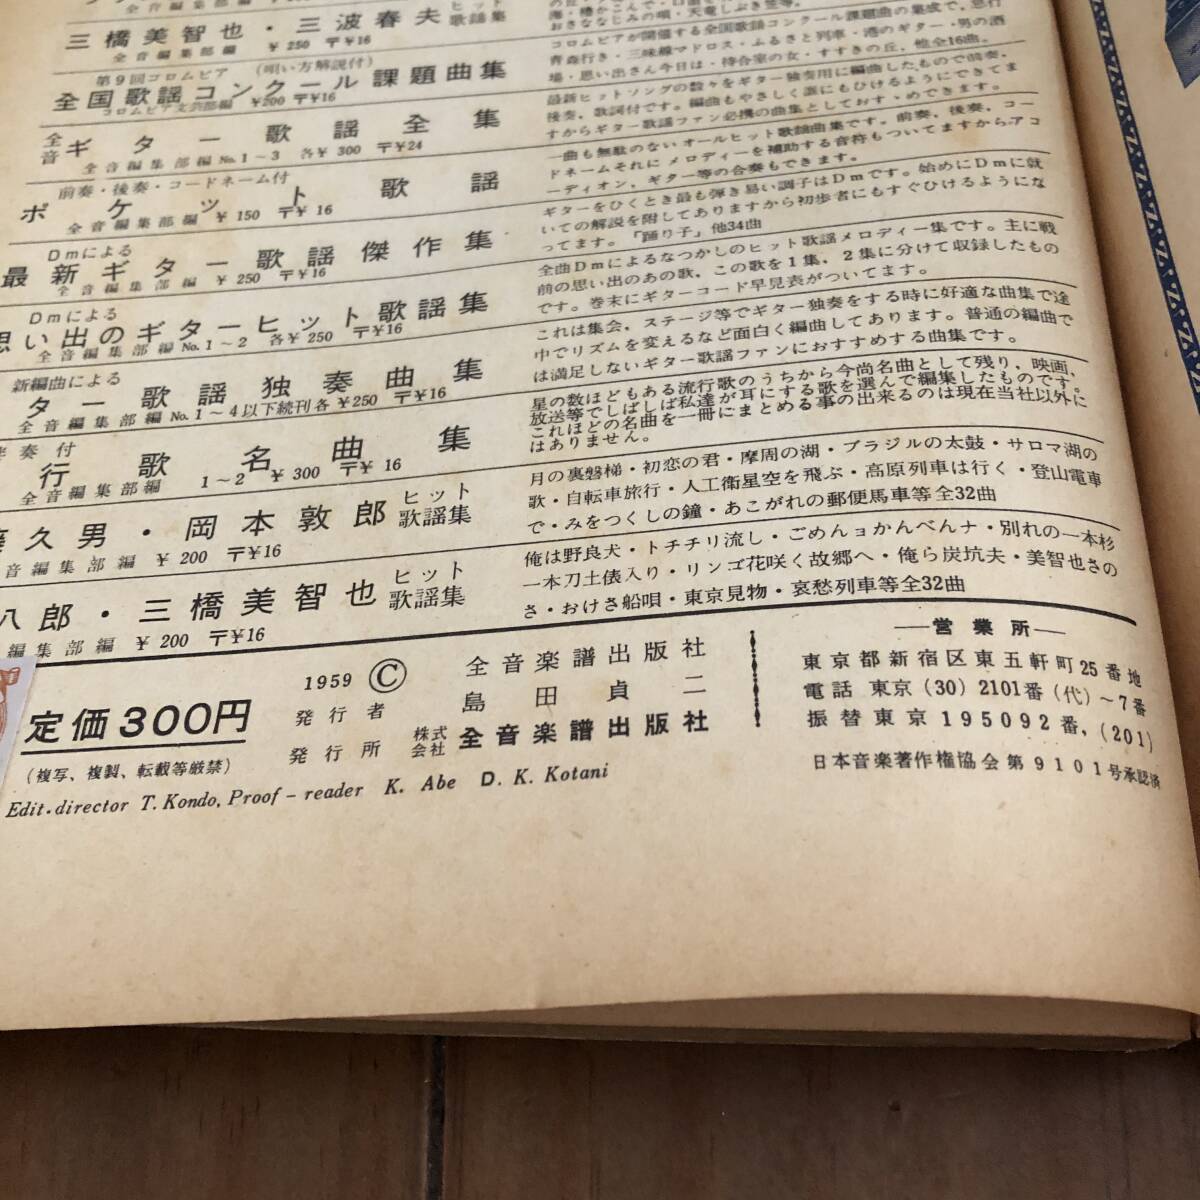 三橋美智也・三波春夫 ヒット歌謡集
全音編集部編 ¥250 〒¥16
第9回コロムビア (唄い方解説付)
全国歌謡コンクール課題曲集
コロムビア文芸部編 ¥200 〒¥16
コロムビアが開催する全国歌謡コンクール課題曲の集成で、急行
青森行き・三味線マドロス・ふるさと列車・港のギター・男の酒
場・思い出さん今日は・待合室の女・すすきの丘、他全16曲。
全音 ギター歌謡全集
全音編集部編 No.1～3 各¥300 〒¥24
最新ヒットソングの数々をギター独奏用に編曲したもので前奏、
後奏、歌詞付です。編曲もやさしく誰にもひけるようにできてま
すからギター歌謡ファン必携の曲集としておすゝめできます。
前奏・後奏・コードネーム付
ポケット歌謡
全音編集部編 ¥150 〒¥16
一曲も無駄のないオールヒット歌謡曲集です。前奏、後奏、コー
ドネームそれに メロディーを補助する音符もついてますからアコ
ーディオン、ギター等の合奏もできます。
Dmによる
最新ギター歌謡傑作集
全音編集部編 ¥250 〒¥16
ギターをひくとき最も弾き易い調子はDmです。始めにDmに就
いての解説を附してありますから初歩者にもすぐひけるようにな
ってます。「踊り子」他34曲
Dmによる
思い出のギターヒット歌謡集
全音編集部編 No.1～2 各¥250 〒¥16
全曲Dmによるなつかしのヒット歌謡メロディー集です。主に戦
前の思い出のあの歌、この歌を1集、2集に分けて収録したもの
です。巻末にギターコード早見表がついてます。
新編曲による
ター歌謡独奏曲集
全音編集部編 No.1～4以下続刊各¥250 〒¥16
これは集会、ステージ等でギター独奏をする時に好適な曲集で途
中でリズムを変えるなど面白く編曲してあります。普通の編曲で
は満足しないギター歌謡ファンにおすすめする曲集です。
奏付
行歌名曲集
全音編集部編 1～2 ¥300 〒¥16
星の数ほどもある流行歌のうちから今尚名曲として残り、映画、
放送等でしばしば私達が耳にする歌を選んで編集したものです。
これほどの名曲を一冊にまとめる事の出来るのは現在当社以外に
はありません。
久男・岡本敦郎 ヒット歌謡集
音編集部編 ¥200 〒¥16
月の裏磐梯・初恋の君・摩周の湖・ブラジルの太鼓・サロマ湖の
歌・自転車旅行・人工衛星空を飛ぶ・高原列車は行く・登山電車
で・みをつくしの鐘・あこがれの郵便馬車等全32曲
八郎・三橋美智也 ヒット歌謡集
編集部編 ¥200 〒¥16
俺は野良犬・トチチリ流し・ごめんョかんべんナ・別れの一本杉
一本刀土俵入り・リンゴ花咲く故郷へ・俺ら炭坑夫・美智也さの
さ・おけさ船唄・東京見物・哀愁列車等全32曲
定価300円
(複写、複製、転載等厳禁)
1959 © 全音楽譜出版社
発行者 島田貞二
発行所 株式会社 全音楽譜出版社
Edit.director T. Kondo, Proof-reader K. Abe D. K. Kotani
―営業所―
東京都新宿区東五軒町25番地
電話 東京(30)2101番(代)～7番
振替東京195092番,(201)
日本音楽著作権協会第9101号承認済